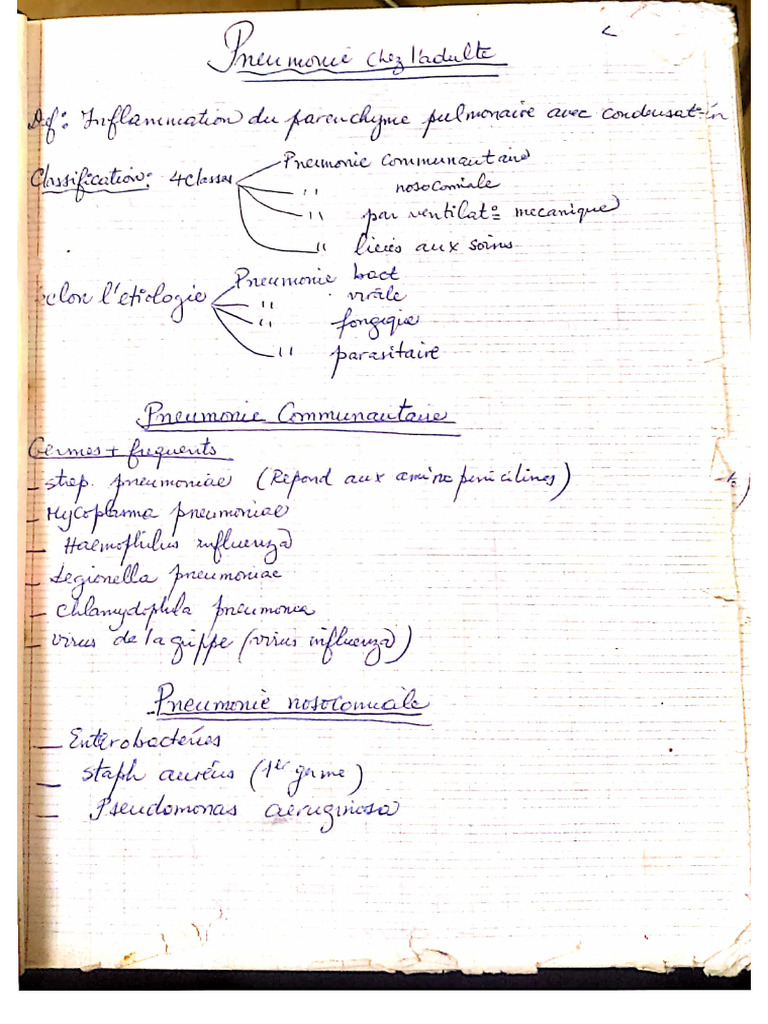 Pneumonie chez l'adulte
Def: Inflammation du parenchyme pulmonaire avec condensat=in
Classification: 4 classes Pneumonie communautaire
" nosocomiale
" par ventilat°= mecanique
" liées aux soins
selon l'etiologie Pneumonie bact
" virale
" fongique
" parasitaire
Pneumonie Communautaire
Germes + frequents
- strep. pneumoniae (Répond aux amino penicilines)
- Mycoplasma pneumoniae
- Haemophilus influenza
- Legionella pneumoniae
- chlamydophila pneumonia
- virus de la grippe (virus influenza)
Pneumonie nosocomiale
- Enterobacteries
- staph auréus (1er germe)
- Pseudomonas aeruginosa